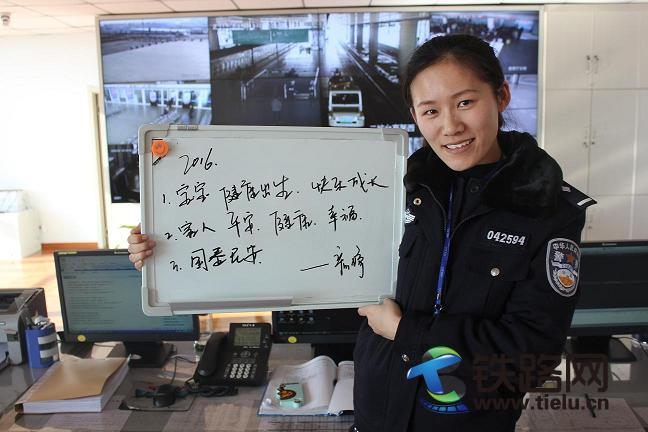 2016.
1. 宝宝 健康出生、快乐成长
2. 家人 平安、健康、幸福.
3. 国泰民安
042594
铁路网
www.tielu.cn